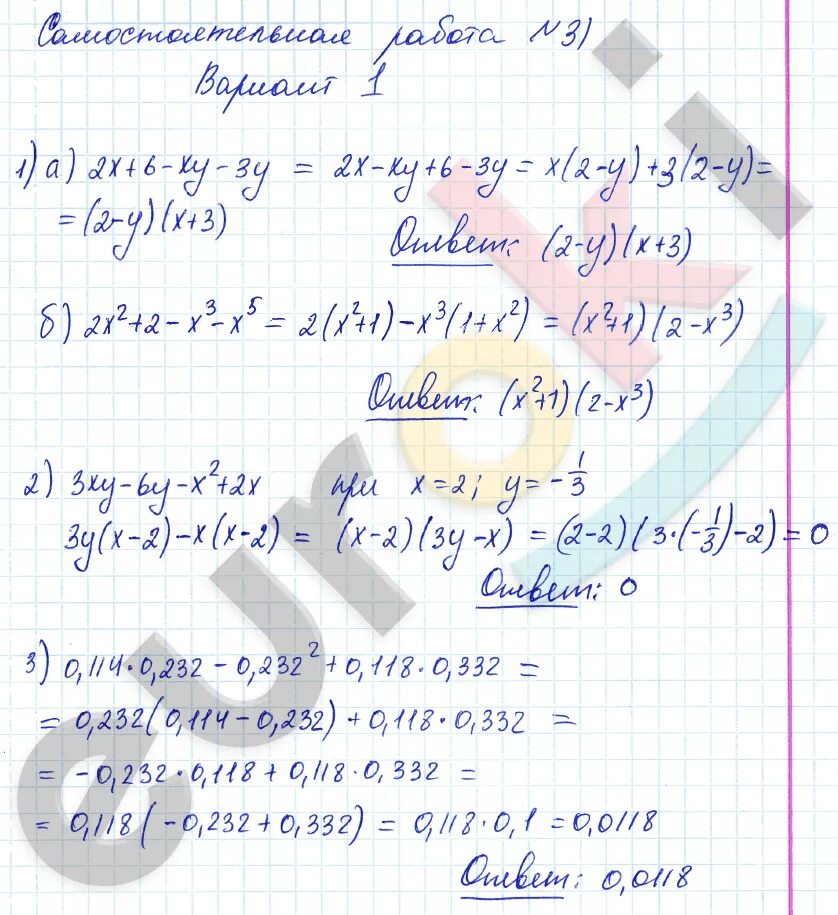 Самостоятельная работа №3)
Вариант 1
1) а) 2x+6-xy-3y = 2x-xy+6-3y = x(2-y)+3(2-y)=
=(2-y)(x+3)
Ответ: (2-y)(x+3)
б) 2x²+2-x³-x⁵ = 2(x²+1)-x³(1+x²) = (x²+1)(2-x³)
Ответ: (x²+1)(2-x³)
2) 3xy-6y-x²+2x при x=2; y=-1/3
3y(x-2)-x(x-2) = (x-2)(3y-x) = (2-2)(3·(-1/3)-2)=0
Ответ: 0
3) 0,114·0,232-0,232²+0,118·0,332 =
= 0,232(0,114-0,232)+0,118·0,332 =
= -0,232·0,118+0,118·0,332 =
= 0,118(-0,232+0,332) = 0,118·0,1 = 0,0118
Ответ: 0,0118
euroki